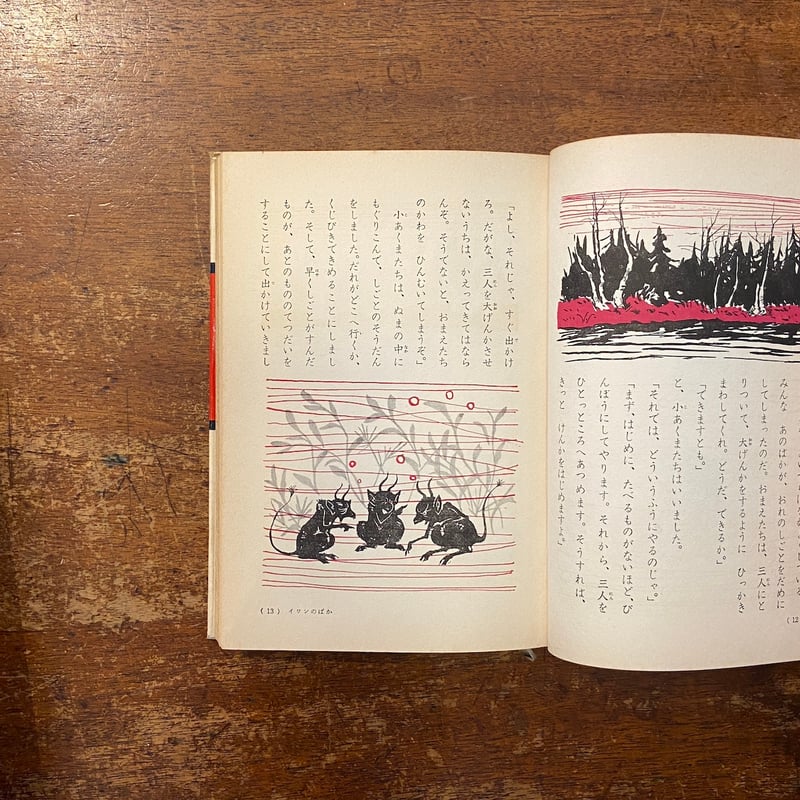 みんな あのばかが、おれのしごとをだめに
してしまったのだ。おまえたちは、三人にと
りついて、大げんかをするように ひっかき
まわしてくれ。どうだ、できるか。」
「できますとも。」
と、小あくまたちはいいました。
「それでは、どういうふうにやるのじゃ。」
「まず、はじめに、たべるものがないほど、び
んぼうにしてやります。それから、三人を
ひとっところへあつめます。そうすれば、
きっと けんかをはじめますよ。」
(12
「よし、それじゃ、すぐ出かけ
ろ。だがな、三人を大げんかさせ
ないうちは、かえってきてはなら
んぞ。そうでないと、おまえたち
のかわを ひんむいてしまうぞ。」
小あくまたちは、ぬまの中に
もぐりこんで、しごとのそうだん
をしました。だれがどこへ行くか、
くじびきできめることにしまし
た。そして、早くしごとがすんだ
ものが、あとのもののてつだいを
することにして出かけていきまし
(13) イワンのばか